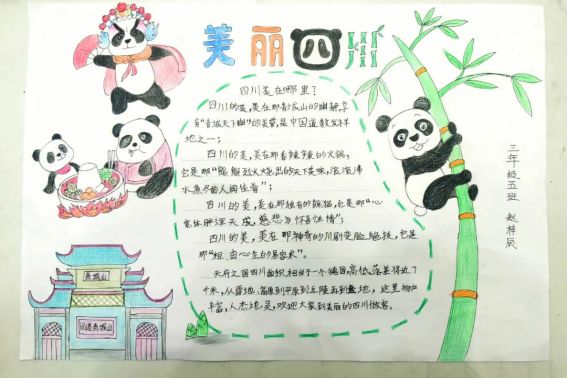 美丽四川
四川美在哪里?
四川的美,美在那青城山的幽静,享
有"青城天下幽"的美誉,是中国道教发祥
地之一;
四川的美,美在那香辣辣的火锅,
它是那"熊熊烈火烧出的天下美味,滚滚沸
水煮尽的人间佳肴";
四川的美,美在那独有的熊猫,它是那"心
宽体胖浑天成,慈悲为怀喜性情";
四川的美,美在那神奇的川剧变脸绝技,它是
那"相由心生的易容术"。
天府之国四川面积相当于一个德国,高低落差将近7
千米,从雪地、高原到平原到丘陵再到盆地,这里物产
丰富,人杰地灵,欢迎大家到美丽的四川做客。
三年级五班 赵梓辰
青城山
问道青城山